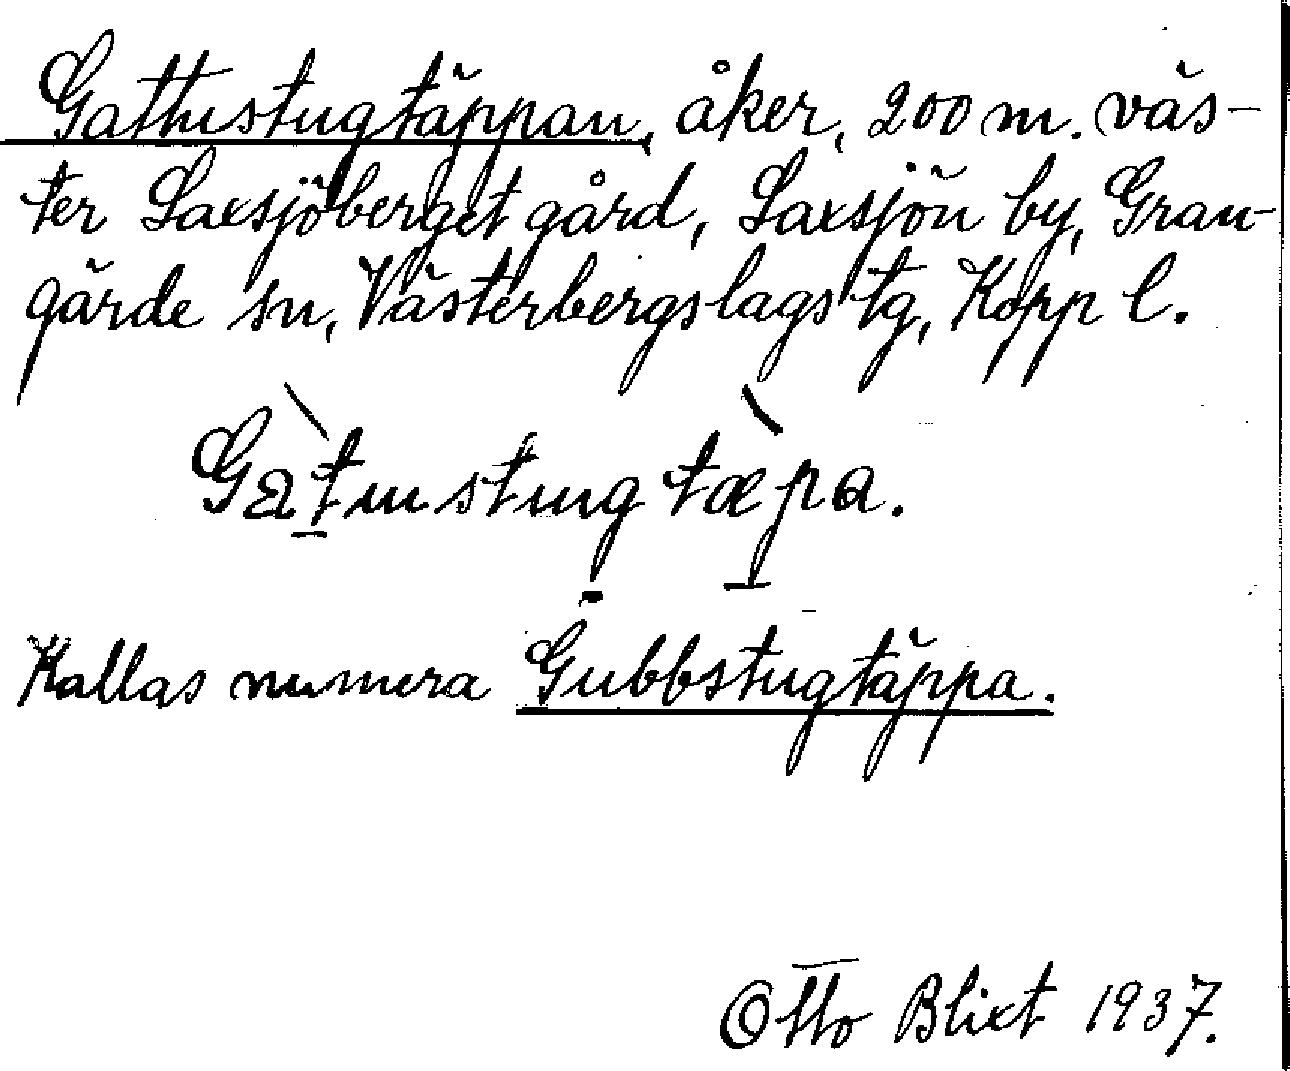 Gattustugtäppan, åker, 200 m. väs-
ter Saxsjöberget gård, Saxsjön by, Gran-
gärde sn, Västerbergslags tg, Kopp l.
Gatustugtæpa.
Kallas numera Gubbstugtäppa.
Otto Blixt 1937.